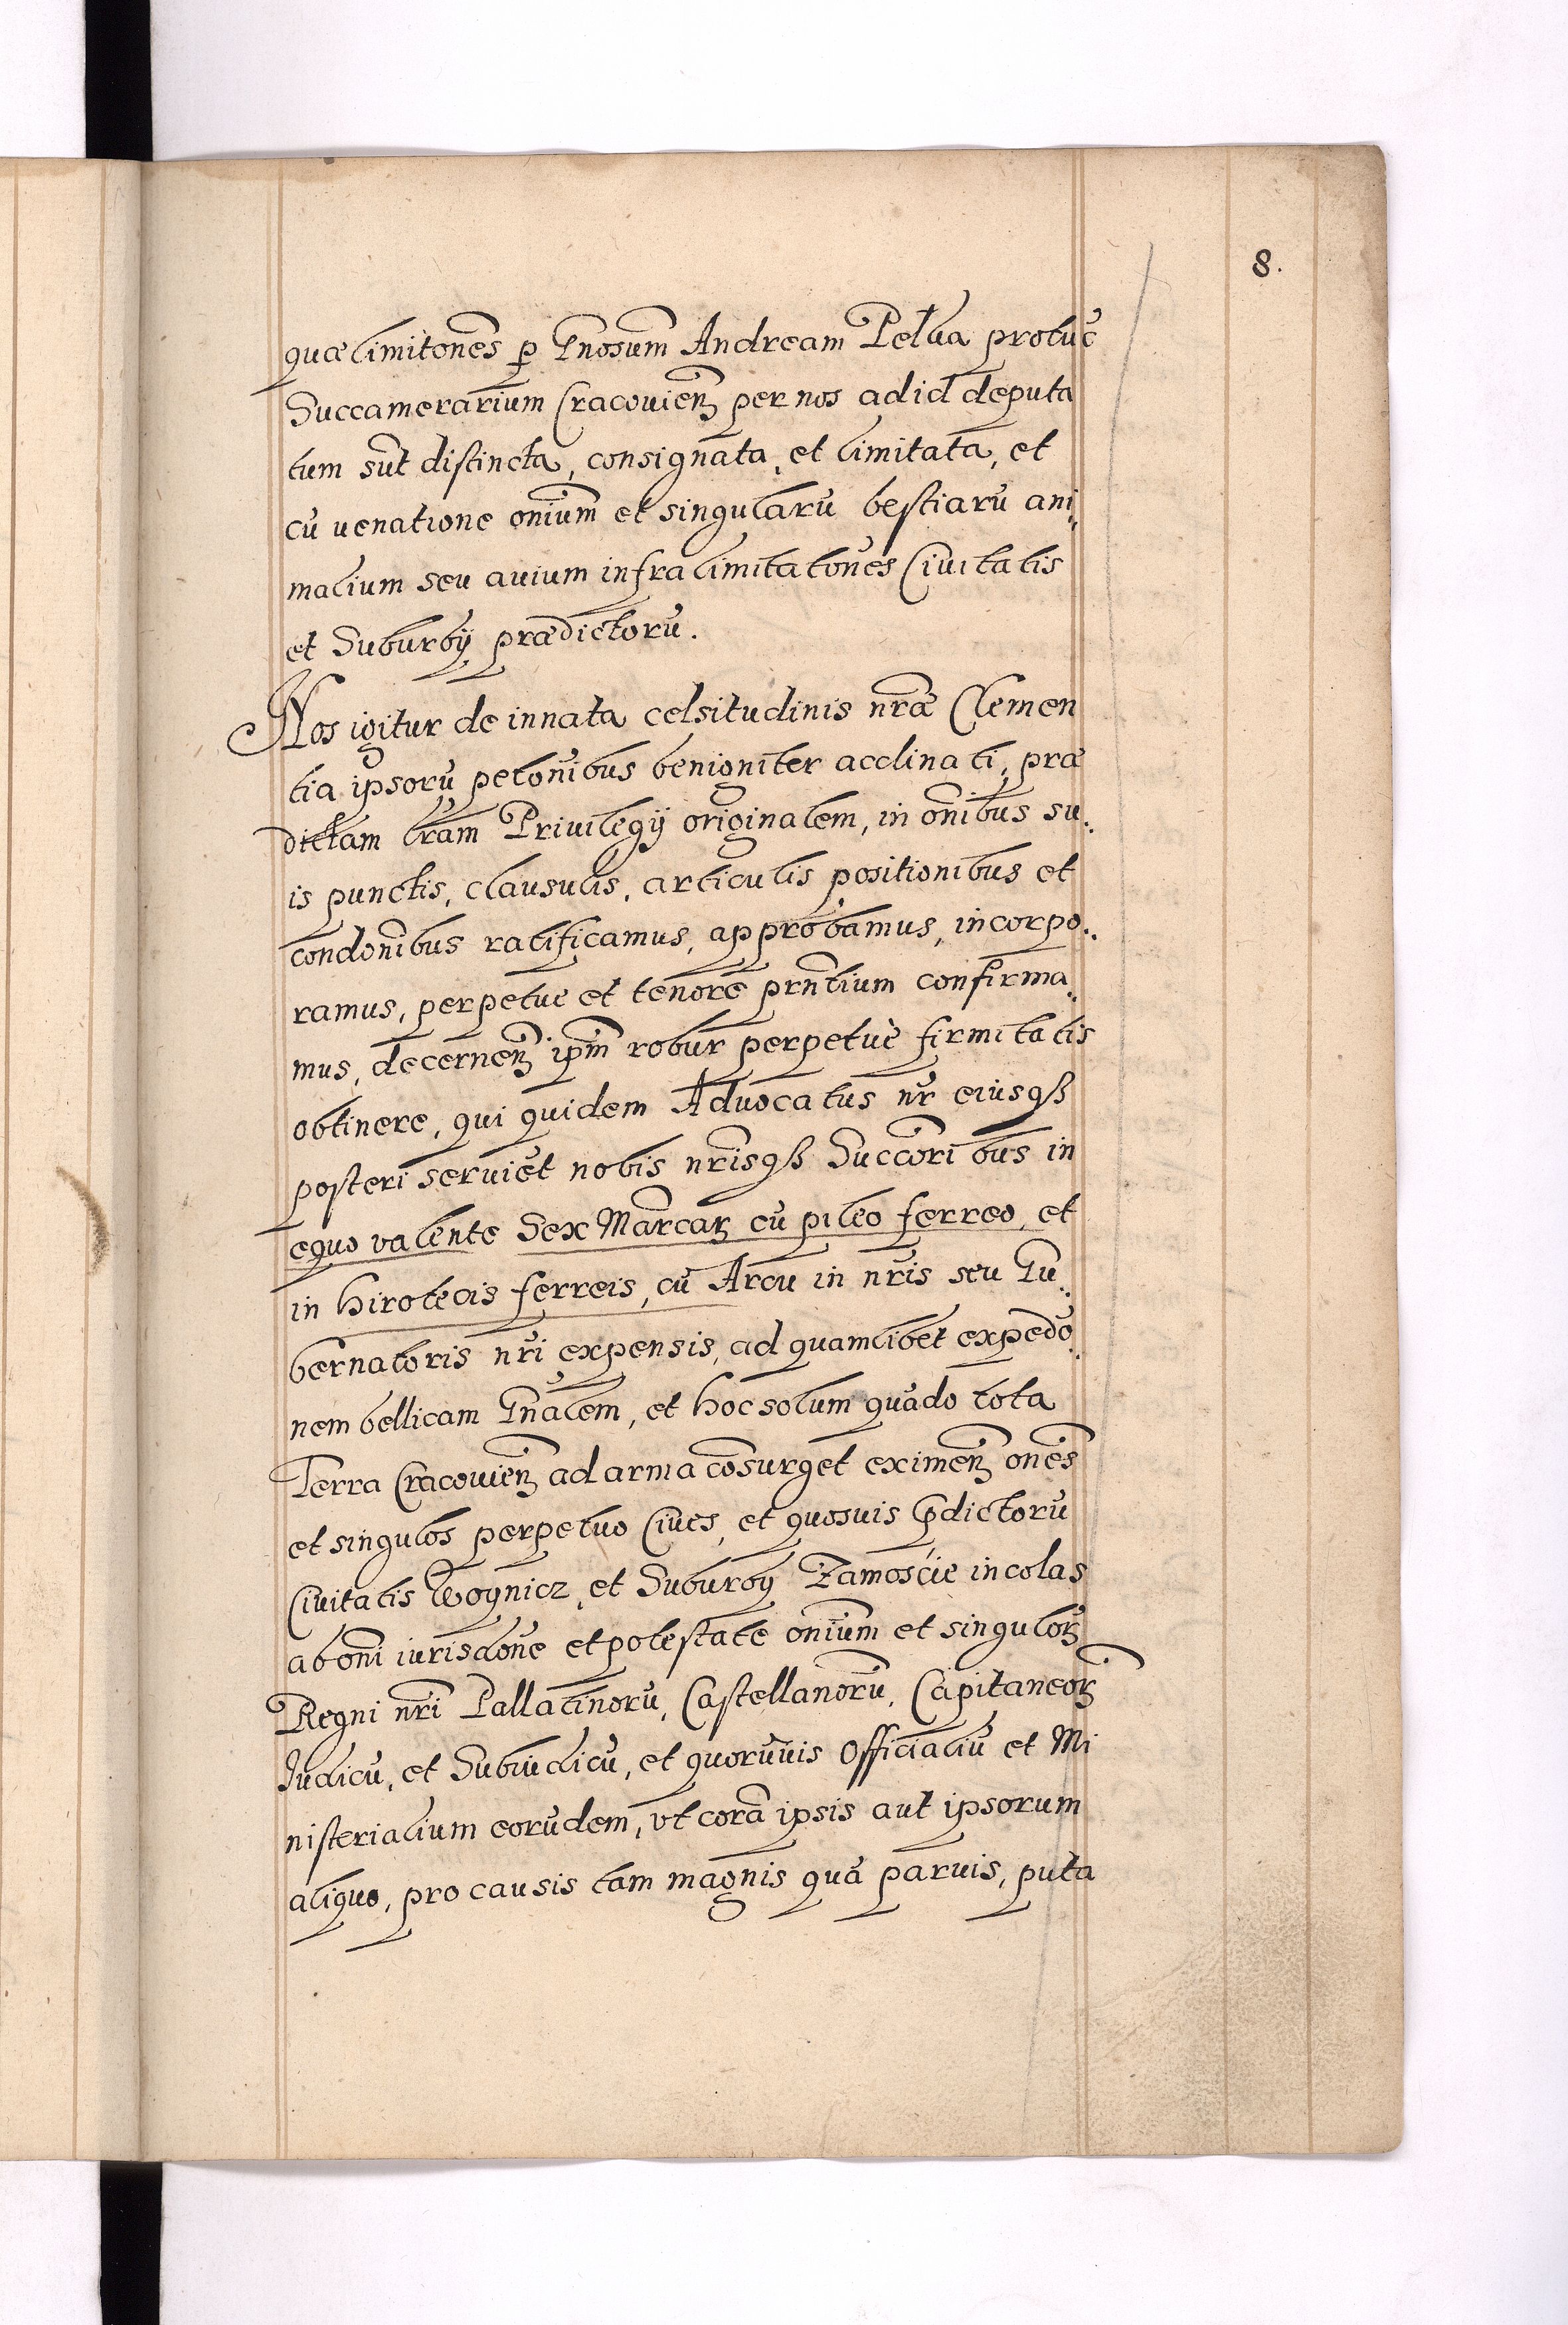 8.
quæ limitōnes ꝑ Gn̄osum Andream Pełka protūc
Succamerarium Cracouien̄ per nos ad id deputa
tum sūt distincta, consignata, et limitata, et
cū venatione on̄ium et singularū bestiarū ani„
malium seu auium infra limitatōnes Ciuitatis
et Suburbij prædictorū.
Nos igitur de innata celsitudinis nr̄æ Clemen
tia ipsorū petōnibus benigniter acclinati, præ
dictam l̄ram Priuilegij originalem, in ōnibus su„
is punctis, clausulis, articulis positionibus et
condōnibus ratificamus, approbamus, incorpo„
ramus, perpetue et tenore prn̄tium confirma„
mus, decernen̄ ipm̄ robur perpetuè firmitatis
obtinere, qui quidem Aduocatus nr̄ eiusqꝫ
posteri seruiēt nobis nr̄isqꝫ Succōribus in
equo valente Sex Marcaꝝ cū pileo ferreo, et
in hirotecis ferreis, cū Arcu in nr̄is seu Gu„
bernatoris nr̄i expensis, ad quamlibet expedō„
nem bellicam Gn̄alem, et hoc solum quādo tota
Terra Cracouien̄ ad arma cōsurget eximen̄ on̄es
et singulos perpetuo Ciues, et quosuis p̄dictorū
Ciuitatis Woynicz, et Suburbij Zamoście incolas
ab on̄i iurisdōne et potestate on̄ium et singuloꝝ
Regni nr̄i Pallatinorū, Castellanorū, Capitaneoꝝ
Iudicū, et Subiudicū, et quorūuis Officialiū et Mi
nisterialium eorūdem, vt corā ipsis aut ipsorum
aliquo, pro causis tam magnis quā paruis, puta